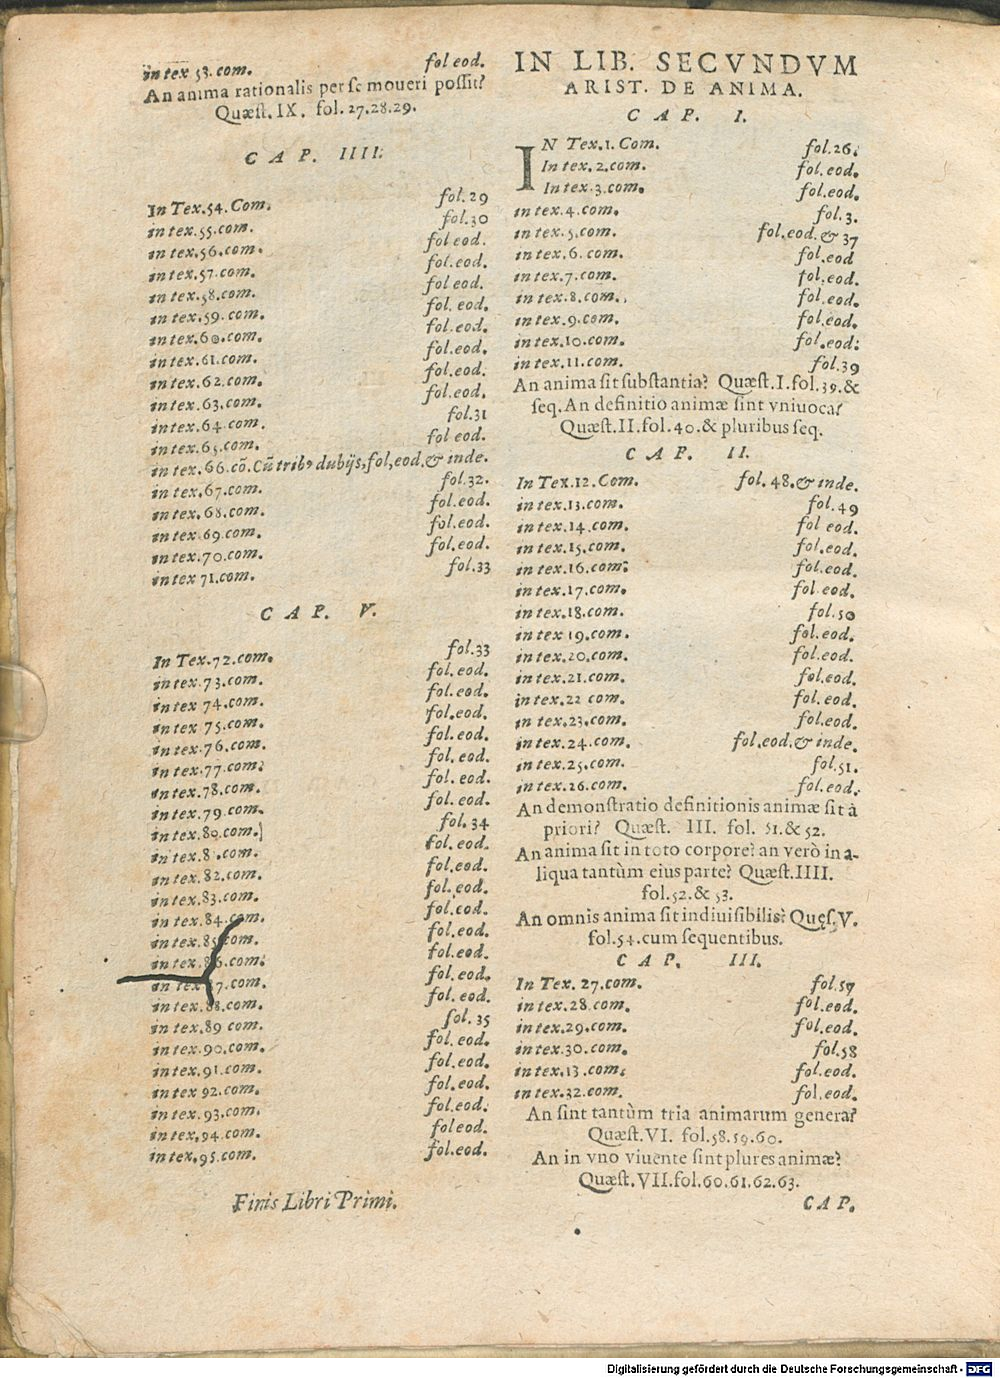 in tex 53. com. fol eod.
An anima rationalis per se moueri possit?
Quæst. IX. fol. 27.28.29.
CAP. IIII.
In Tex.54.Com. fol.29
in tex.55.com. fol.30
in tex.56.com. fol eod.
in tex.57.com. fol.eod.
in tex.58.com. fol eod.
in tex.59.com. fol. eod.
in tex.60.com. fol.eod.
in tex.61.com. fol.eod.
in tex.62.com. fol.eod.
in tex.63.com. fol.eod.
in tex.64.com. fol.31
in tex.65.com. fol eod.
in tex.66.cō.Cū tribꝰ dubijs,fol,eod.& inde.
in tex.67.com. fol.32.
in tex.68.com. fol.eod.
in tex.69.com. fol.eod.
in tex.70.com. fol.eod.
in tex 71.com. fol.33
CAP. V.
In Tex.72.com. fol.33
in tex.73.com. fol.eod.
in tex 74.com. fol.eod.
in tex 75.com. fol.eod.
in tex.76.com. fol.eod.
in tex.77.com. fol. eod.
in tex.78.com. fol. eod.
in tex.79.com. fol.eod.
in tex.80.com. fol.34
in tex.8 .com. fol. eod.
in tex.82.com. fol.eod.
in tex.83.com. fol.eod.
in tex.84.com. fol.eod.
in tex.85.com. fol.eod.
in tex.86.com. fol.eod.
in tex.87.com. fol.eod.
in tex.88.com. fol. eod.
in tex.89 com. fol. 35
in tex.90.com. fol.eod.
in tex.91.com. fol.eod.
in tex 92.com. fol.eod.
in tex.93.com. fol.eod.
in tex.94.com. fol eod.
in tex.95.com. fol.eod.
Finis Libri Primi.
IN LIB. SECVNDVM
ARIST. DE ANIMA.
CAP. I.
IN Tex.1.Com. fol.26.
In tex.2.com. fol.eod.
In tex.3.com. fol.eod.
in tex.4.com. fol.3.
in tex.5.com. fol.eod.& 37
in tex.6.com. fol.eod
in tex.7.com. fol.eod.
in tex.8.com. fol.eod.
in tex.9.com. fol.eod.
in tex.10.com. fol.eod.
in tex.11.com. fol.39
An anima sit substantia? Quæst.I.fol.39.&
seq.An definitio animæ sint vniuoca?
Quæst.II.fol.40.& pluribus seq.
CAP. II.
In Tex.12.Com. fol. 48.& inde.
in tex.13.com. fol.49
in tex.14.com. fol eod.
in tex.15.com. fol.eod.
in tex.16.com. fol.eod.
in tex.17.com. fol eod.
in tex.18.com. fol.50
in tex 19.com. fol.eod.
in tex.20.com. fol.eod.
in tex.21.com. fol.eod.
in tex.22 com. fol.eod.
in tex.23.com. fol.eod.
in tex.24.com. fol.eod.& inde.
in tex.25.com. fol.51.
in tex.26.com. fol.eod.
An demonstratio definitionis animæ sit à
priori? Quæst. III. fol. 51.& 52.
An anima sit in toto corpore? an verò in a-
liqua tantùm eius parte? Quæst.IIII.
fol.52.& 53.
An omnis anima sit indiuisibilis? Quęs.V.
fol.54.cum sequentibus.
CAP. III.
In Tex. 27.com. fol.57
in tex.28.com. fol.eod.
in tex.29.com. fol.eod.
in tex.30.com. fol.58
in tex.13.com. fol.eod.
in tex.32.com. fol.eod.
An sint tantùm tria animarum genera?
Quæst.VI. fol.58.59.60.
An in vno viuente sint plures animæ?
Quæst.VII.fol.60.61.62.63.
CAP.
Digitalisierung gefördert durch die Deutsche Forschungsgemeinschaft - DFG